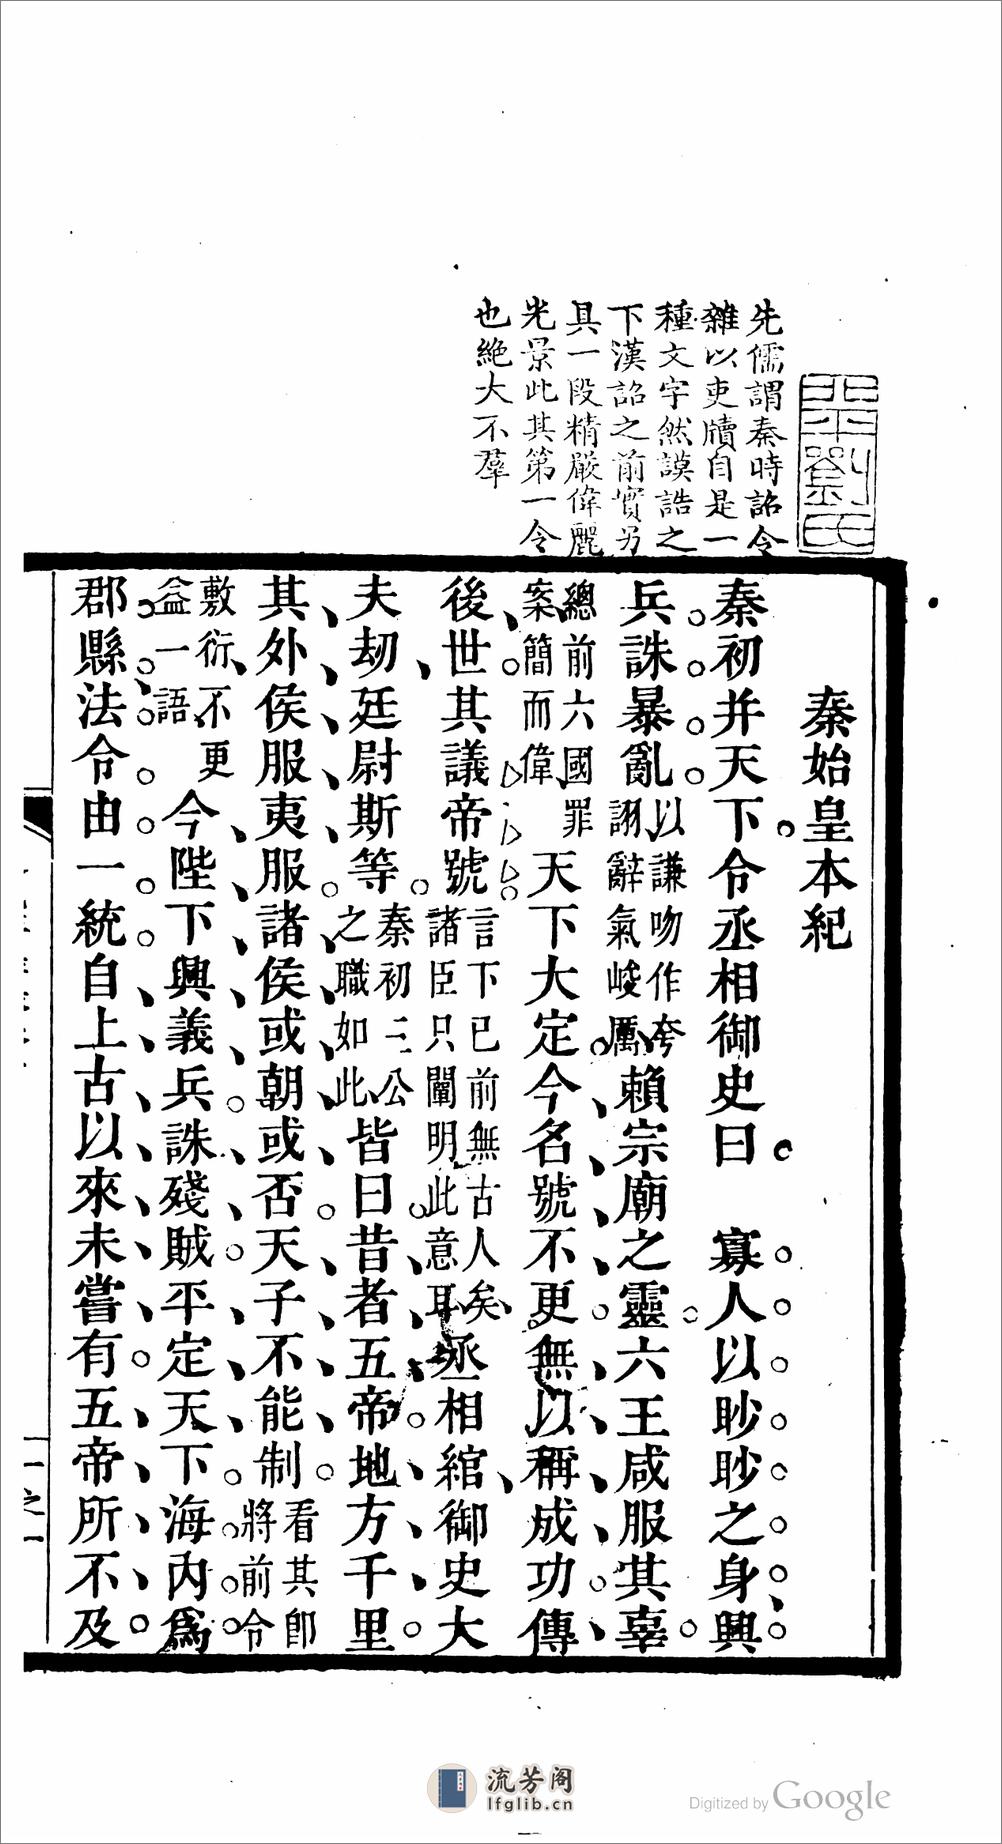 先儒謂秦時詔令
雜以吏牘自是一
種文字然謨誥之
下漢詔之前實另
具一段精嚴偉麗
光景此其第一令
也絶大不羣
秦始皇本紀
秦初并天下令丞相御史曰 寡人以眇眇之身興
兵誅暴亂以謙吻作夸詡辭氣峻厲賴宗廟之靈六王咸服其辜
總前六國罪案簡而偉天下大定今名號不更無以稱成功傳
後世其議帝號言下已前無古人矣諸臣只闡明此意耳丞相綰御史大
夫劫廷尉斯等秦初三公之職如此皆曰昔者五帝地方千里
其外侯服夷服諸侯或朝或否天子不能制看其卽將前令
敷衍不更益一語今陛下興義兵誅殘賊平定天下海內爲
郡縣法令由一統自上古以來未嘗有五帝所不及
流芳阁
lfglib.cn
Digitized by Google